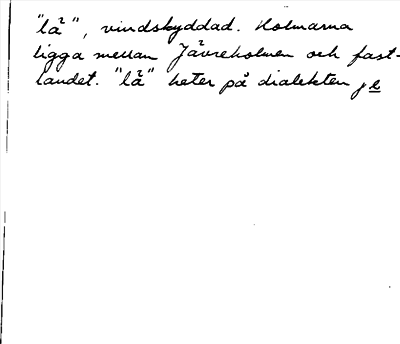 "lå", vindskyddad. Holmarna
ligga mellan Jävreholmen och fast-
landet. "lå" heter på dialekten